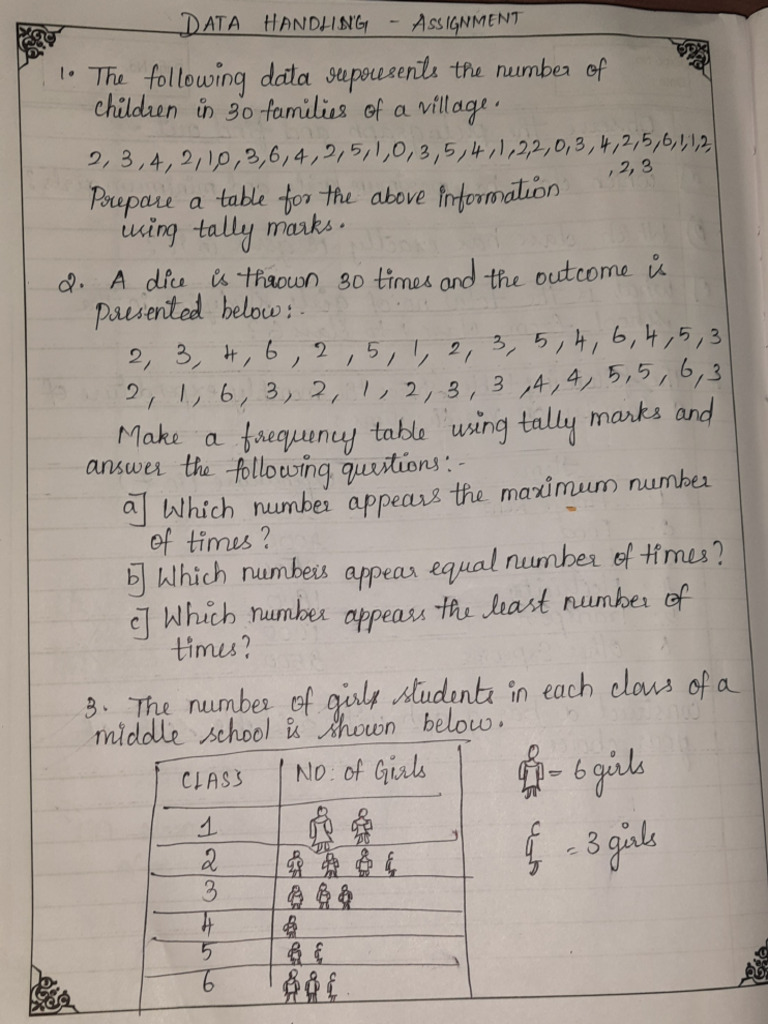 DATA HANDLING - ASSIGNMENT
1. The following data represents the number of
children in 30 families of a village.
2, 3, 4, 2, 1, 0, 3, 6, 4, 2, 5, 1, 0, 3, 5, 4, 1, 2, 2, 0, 3, 4, 2, 5, 6, 1, 1, 2,
, 2, 3
Prepare a table for the above information
using tally marks.
2. A dice is thrown 30 times and the outcome is
presented below:-
2, 3, 4, 6, 2, 5, 1, 2, 3, 5, 4, 6, 4, 5, 3
2, 1, 6, 3, 2, 1, 2, 3, 3, 4, 4, 5, 5, 6, 3
Make a frequency table using tally marks and
answer the following questions:-
a] Which number appears the maximum number
of times?
b] Which numbers appear equal number of times?
c] Which number appears the least number of
times?
3. The number of girls students in each class of a
middle school is shown below.
CLASS NO: of Girls
= 6 girls
1
2
= 3 girls
3
4
5
6